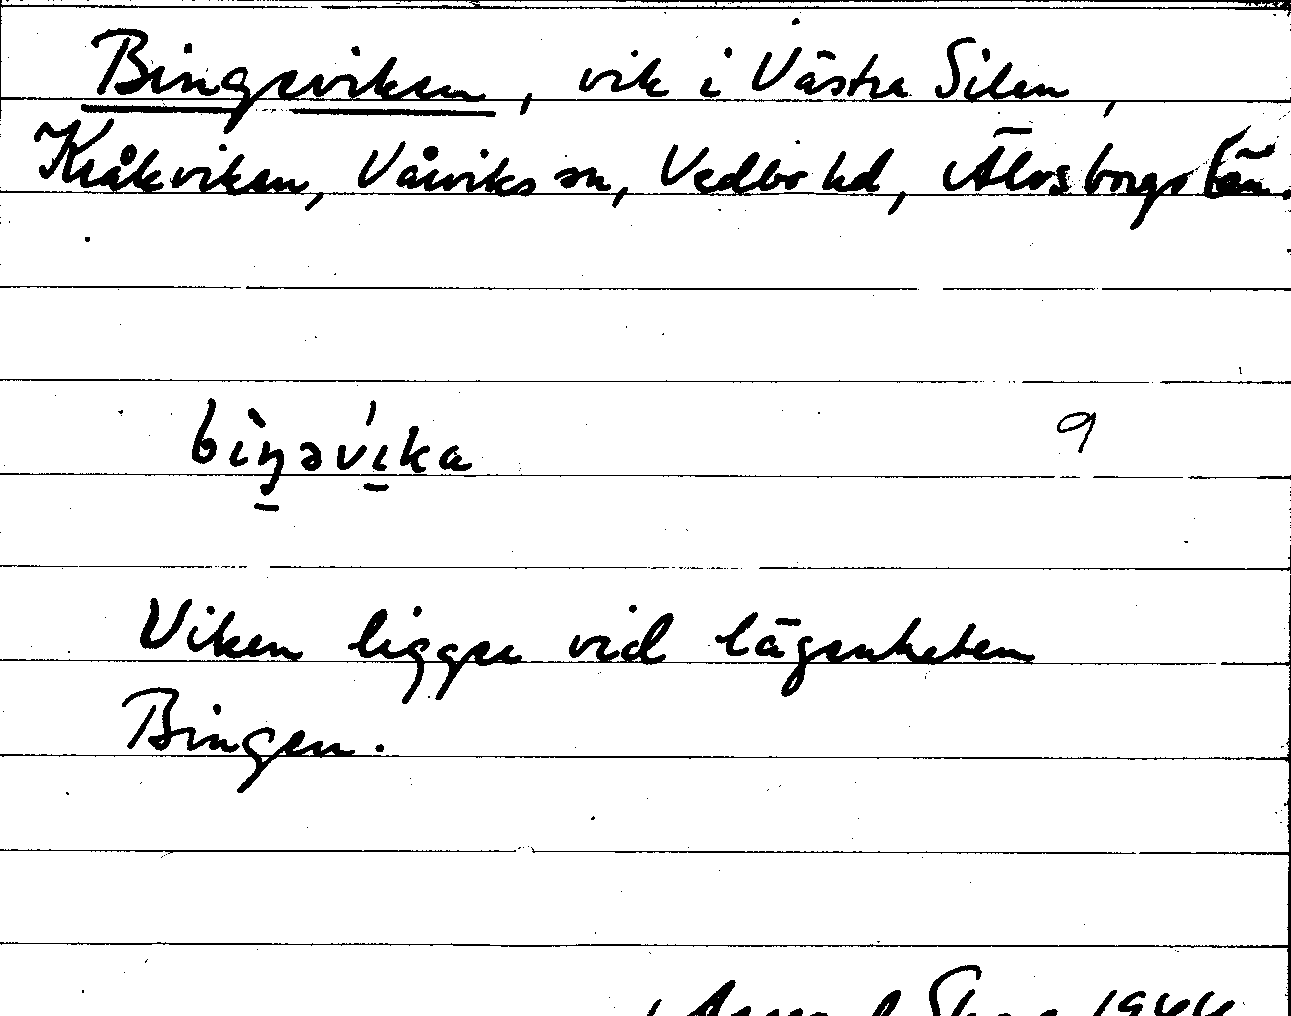 Bingeviken, vik i Västra Silen,
Kråkviken, Vårviks sn, Vedbo hd, Älvsborgs län.
bìŋəvíka 9
Viken ligger vid lägenheten
Bingen.
1944